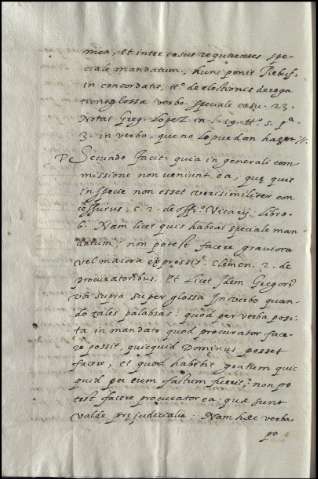 mea, et inter casus requirentes spe-
ciale mandatum, hunc ponit Rebuf.
in concordatis, tt.º de electionis deroga
tione glossa verbo speciale casu. 23.
Notat Greg. Lopez in l. 19. tt.º 5. p.ª
3. in verbo, que no lo puedan hazer //.
Secundo facit: quia in generali com
missione non veniunt ea, que quis
in specie non esset verisimiliter con
cessurus, c. 2. de off.º Vicarij, libro
6. Nam licet quis habeat speciale man
datum, non potest facere graviora
vel maiora expressis. Clemen. 2. de
procuratoribus. Et licet idem Gregori
us supra super glossa in verbo quan
do tales palabras: quod per verba posi
ta in mandato quod procurator face
re possit, quicquid Dominus posset
facere, et quod habebit gratum quic
quid per eum factum fuerit; non po
test facere procurator ea que sunt
valde prejudicialia. Nam hec verba
po